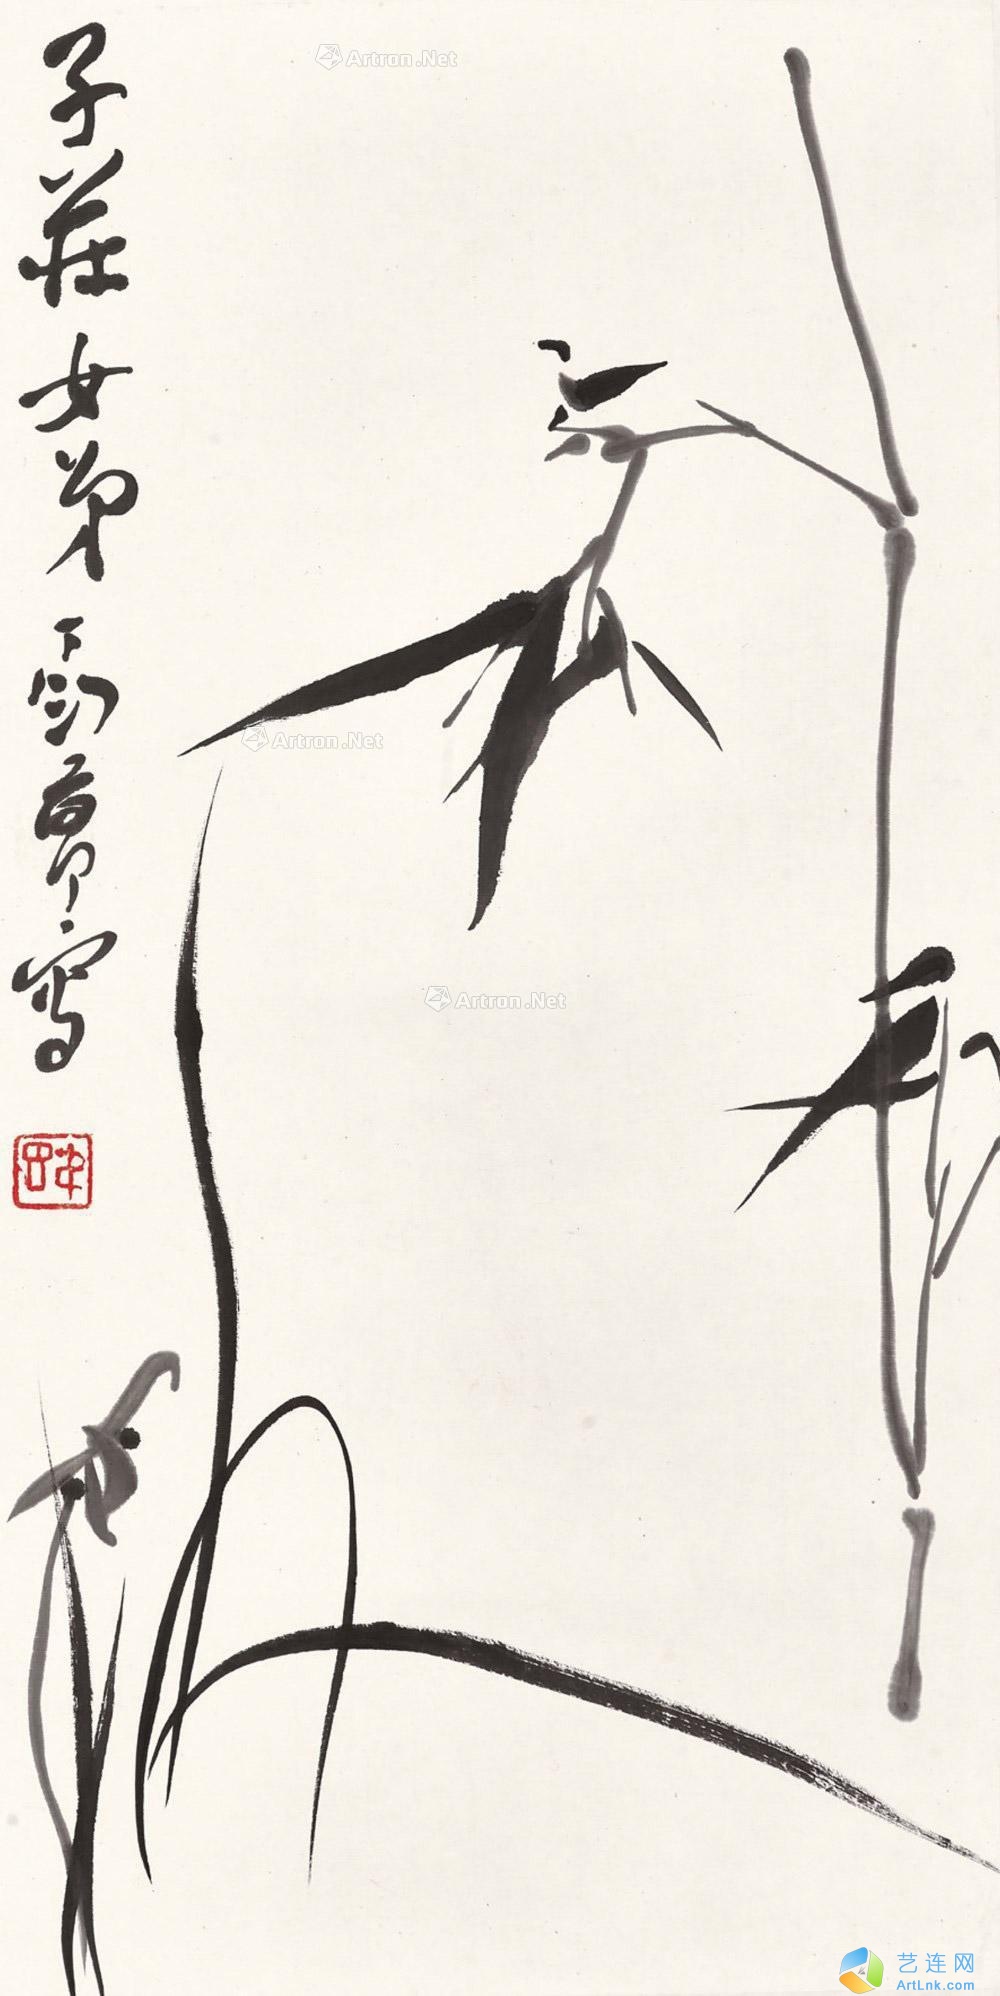 子莊女弟丁衍庸寫
Artron.Net
Artron.Net
Artron.Net
艺连网
ArtLnk.com